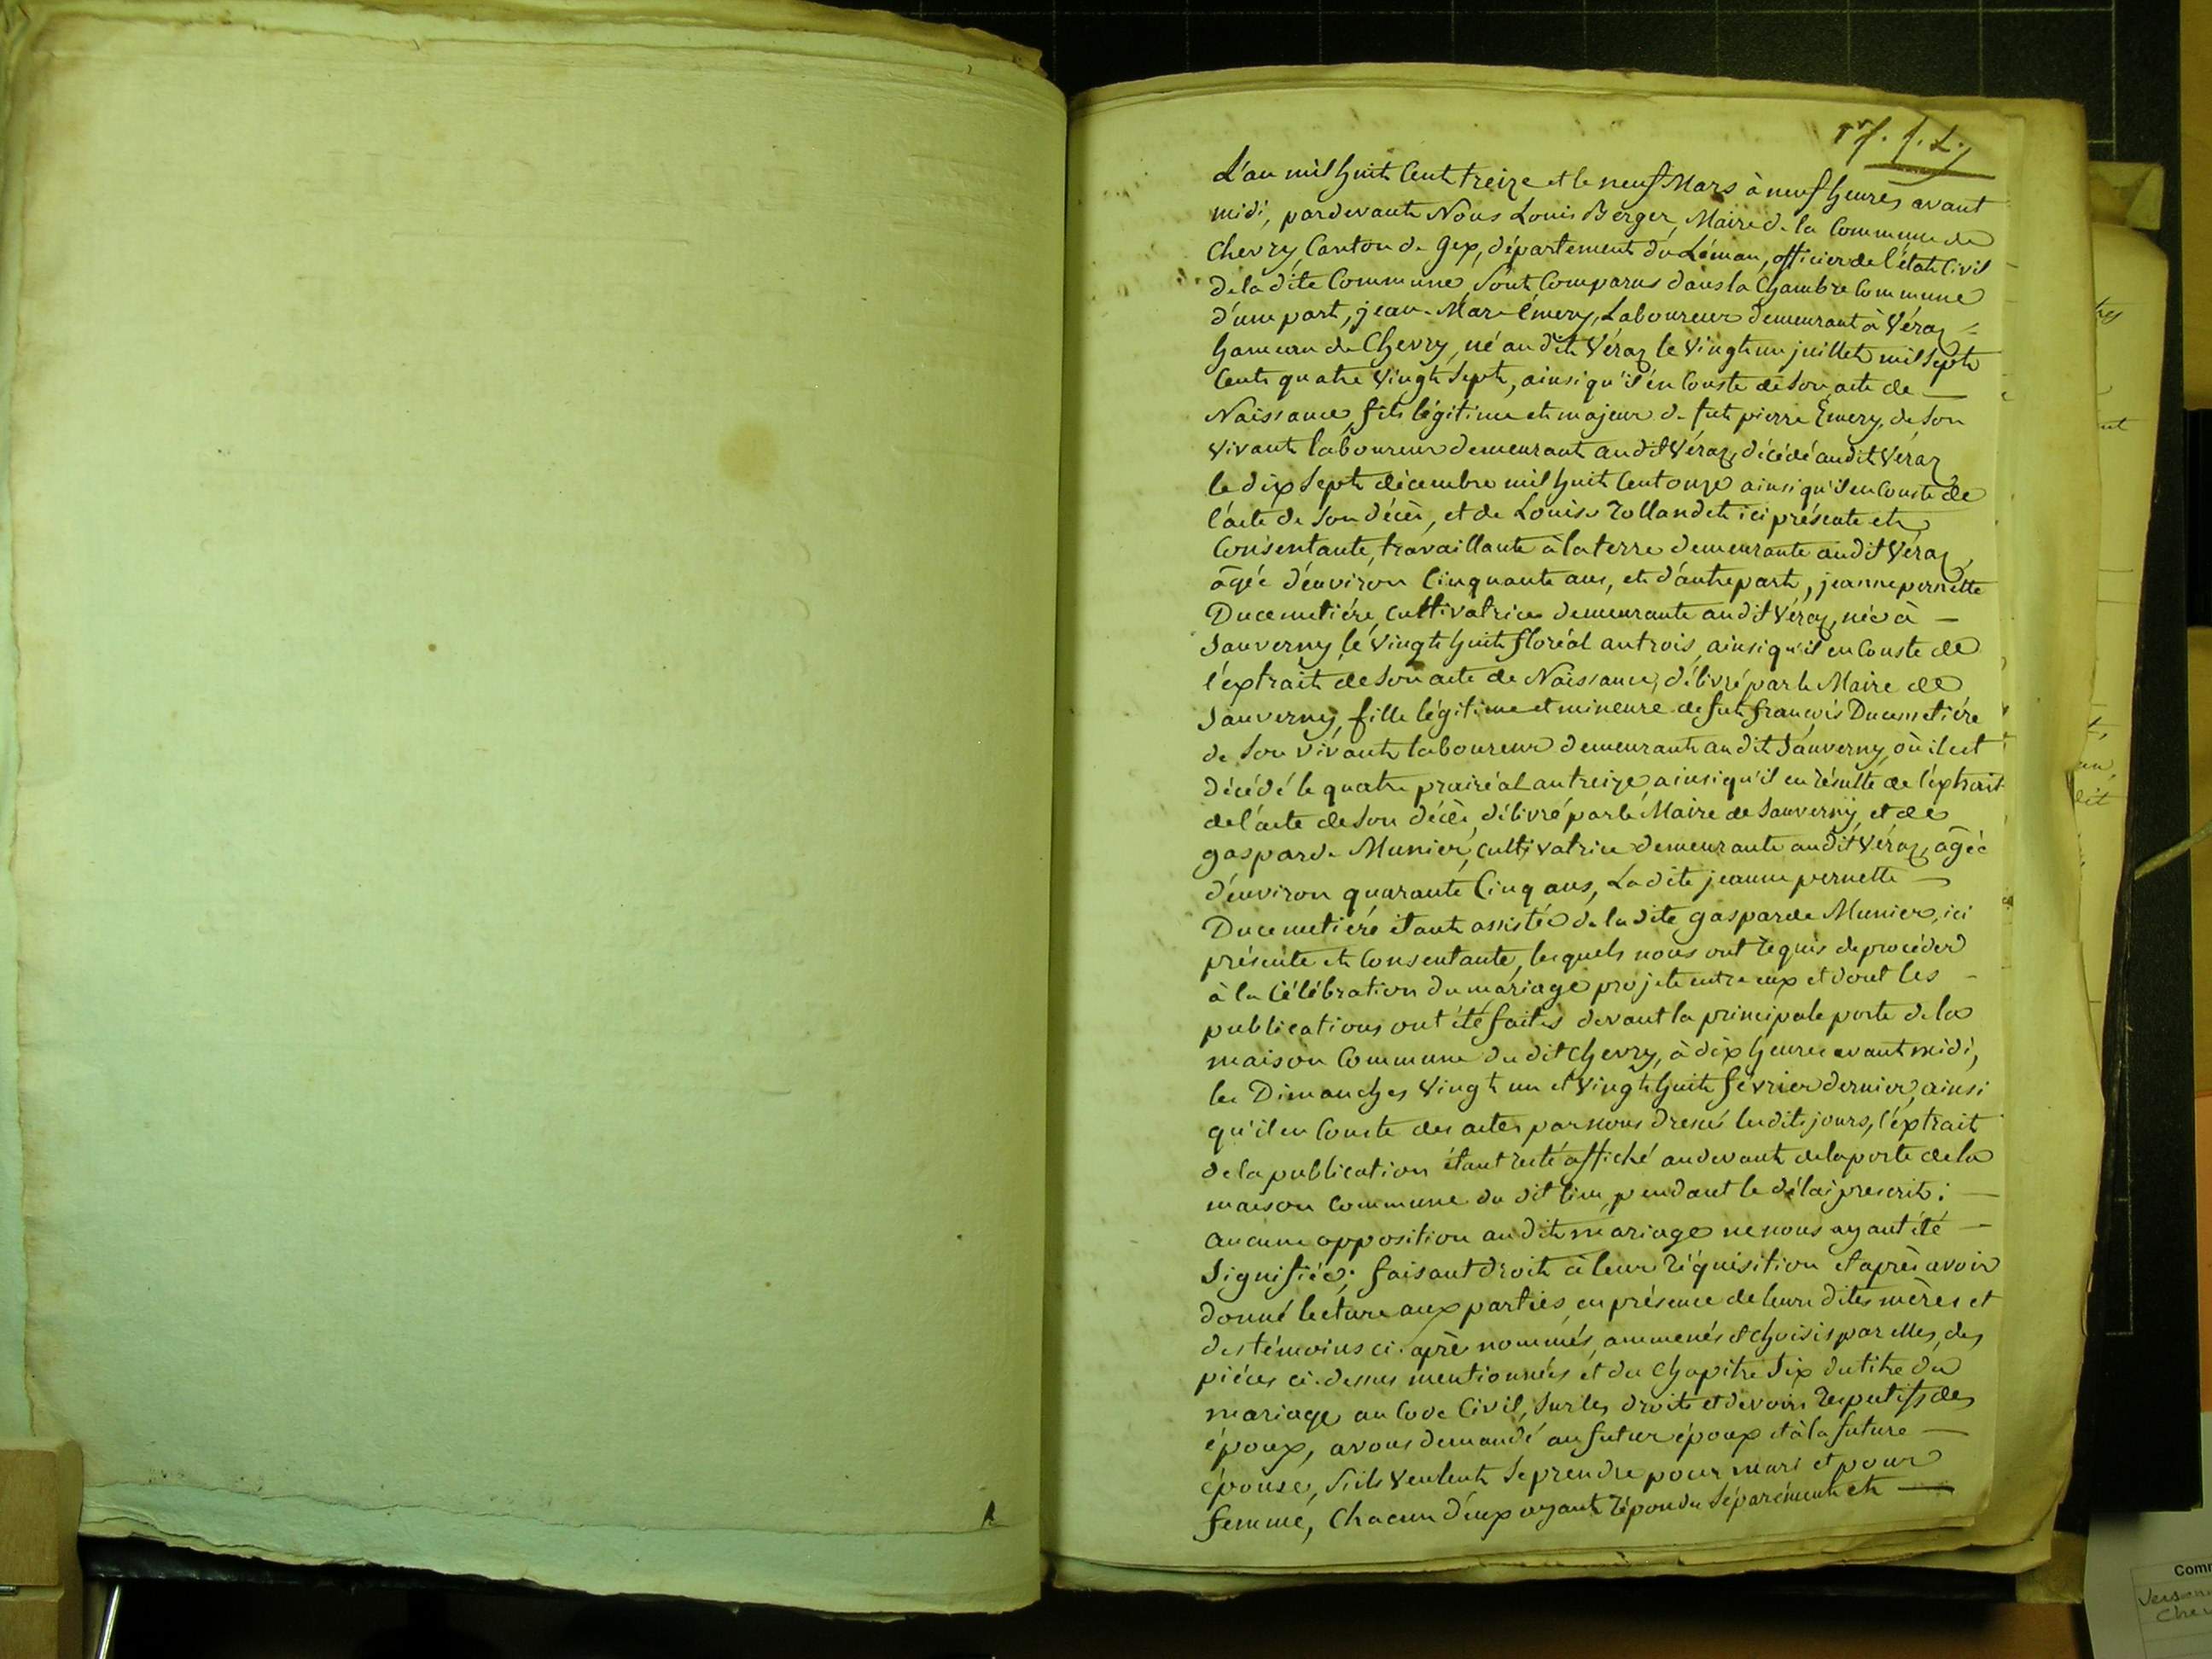 L'an mil huit Cent treize et le neuf Mars à neuf heures avant
midi, pardevant Nous Louis Berger, Maire de la Commune de
Chevry, Canton de Gex, département du Léman, officier de l'état Civil
de la dite Commune, Sont Comparus dans la Chambre Commune
d'une part, jean-Marc Émery, Laboureur demeurant à Véraz
hameau de Chevry, né au dit Véraz le Vingt un juillet mil Sept
Cent quatre Vingt Sept, ainsi qu'il en Conste de Son acte de
Naissance, fils légitime et majeur de fut pierre Émery, de Son
Vivant laboureur demeurant au dit Véraz, décédé audit Véraz
le dix Sept décembre mil huit Cent onze ainsi qu'il en Conste de
l'acte de Son décès, et de Louise Rollandet ici présente et
Consentante, travaillante à la terre demeurante audit Véraz,
âgée d'environ Cinquante ans, et d'autre part, jeanne pernette
Ducemetiére, Cultivatrice demeurante audit Véraz, née à
Sauverny, le Vingt huit floréal an trois, ainsi qu'il en Conste de
l'extrait de Son acte de Naissance, délivré par le Maire de
Sauverny, fille légitime et mineure de fut françois Ducemetiére
de Son vivant laboureur demeurant au dit Sauverny, où il est
décédé le quatre prairéal an treize, ainsi qu'il en résulte de l'extrait
de l'acte de Son décès, délivré par le Maire de Sauverny, et de
gasparde Munier, Cultivatrice demeurante audit Véraz, âgée
d'environ quarante Cinq ans, La dite jeanne pernette
Ducemetiére étant assistée de la dite gasparde Munier, ici
présente et Consentante, lesquels nous ont requis de procéder
à la Célébration du mariage projeté entre eux et dont les
publications ont été faites devant la principale porte de la
maison Commune du dit Chevry, à dix heures avant midi,
les Dimanches Vingt un et Vingt huit février dernier, ainsi
qu'il en Conste des actes par nous dressés les dits jours, l'extrait
de la publication étant resté affiché au devant de la porte de la
maison Commune du dit lieu, pendant le délai prescrit ;
aucune opposition au dit mariage ne nous ayant été
Signifiée ; faisant droit à leur réquisition et après avoir
donné lecture aux parties, en présence de leurs dites mères et
des témoins ci-après nommés, ammenés et choisis par elles, des
piéces ci-dessus mentionnées et du Chapitre Six du titre du
mariage au Code Civil, Sur les droits et devoirs respectifs des
époux, avons demandé au futur époux et à la future
épouse, S'ils veulent Se prendre pour mari et pour
femme, Chacun d'eux ayant répondu Séparément et